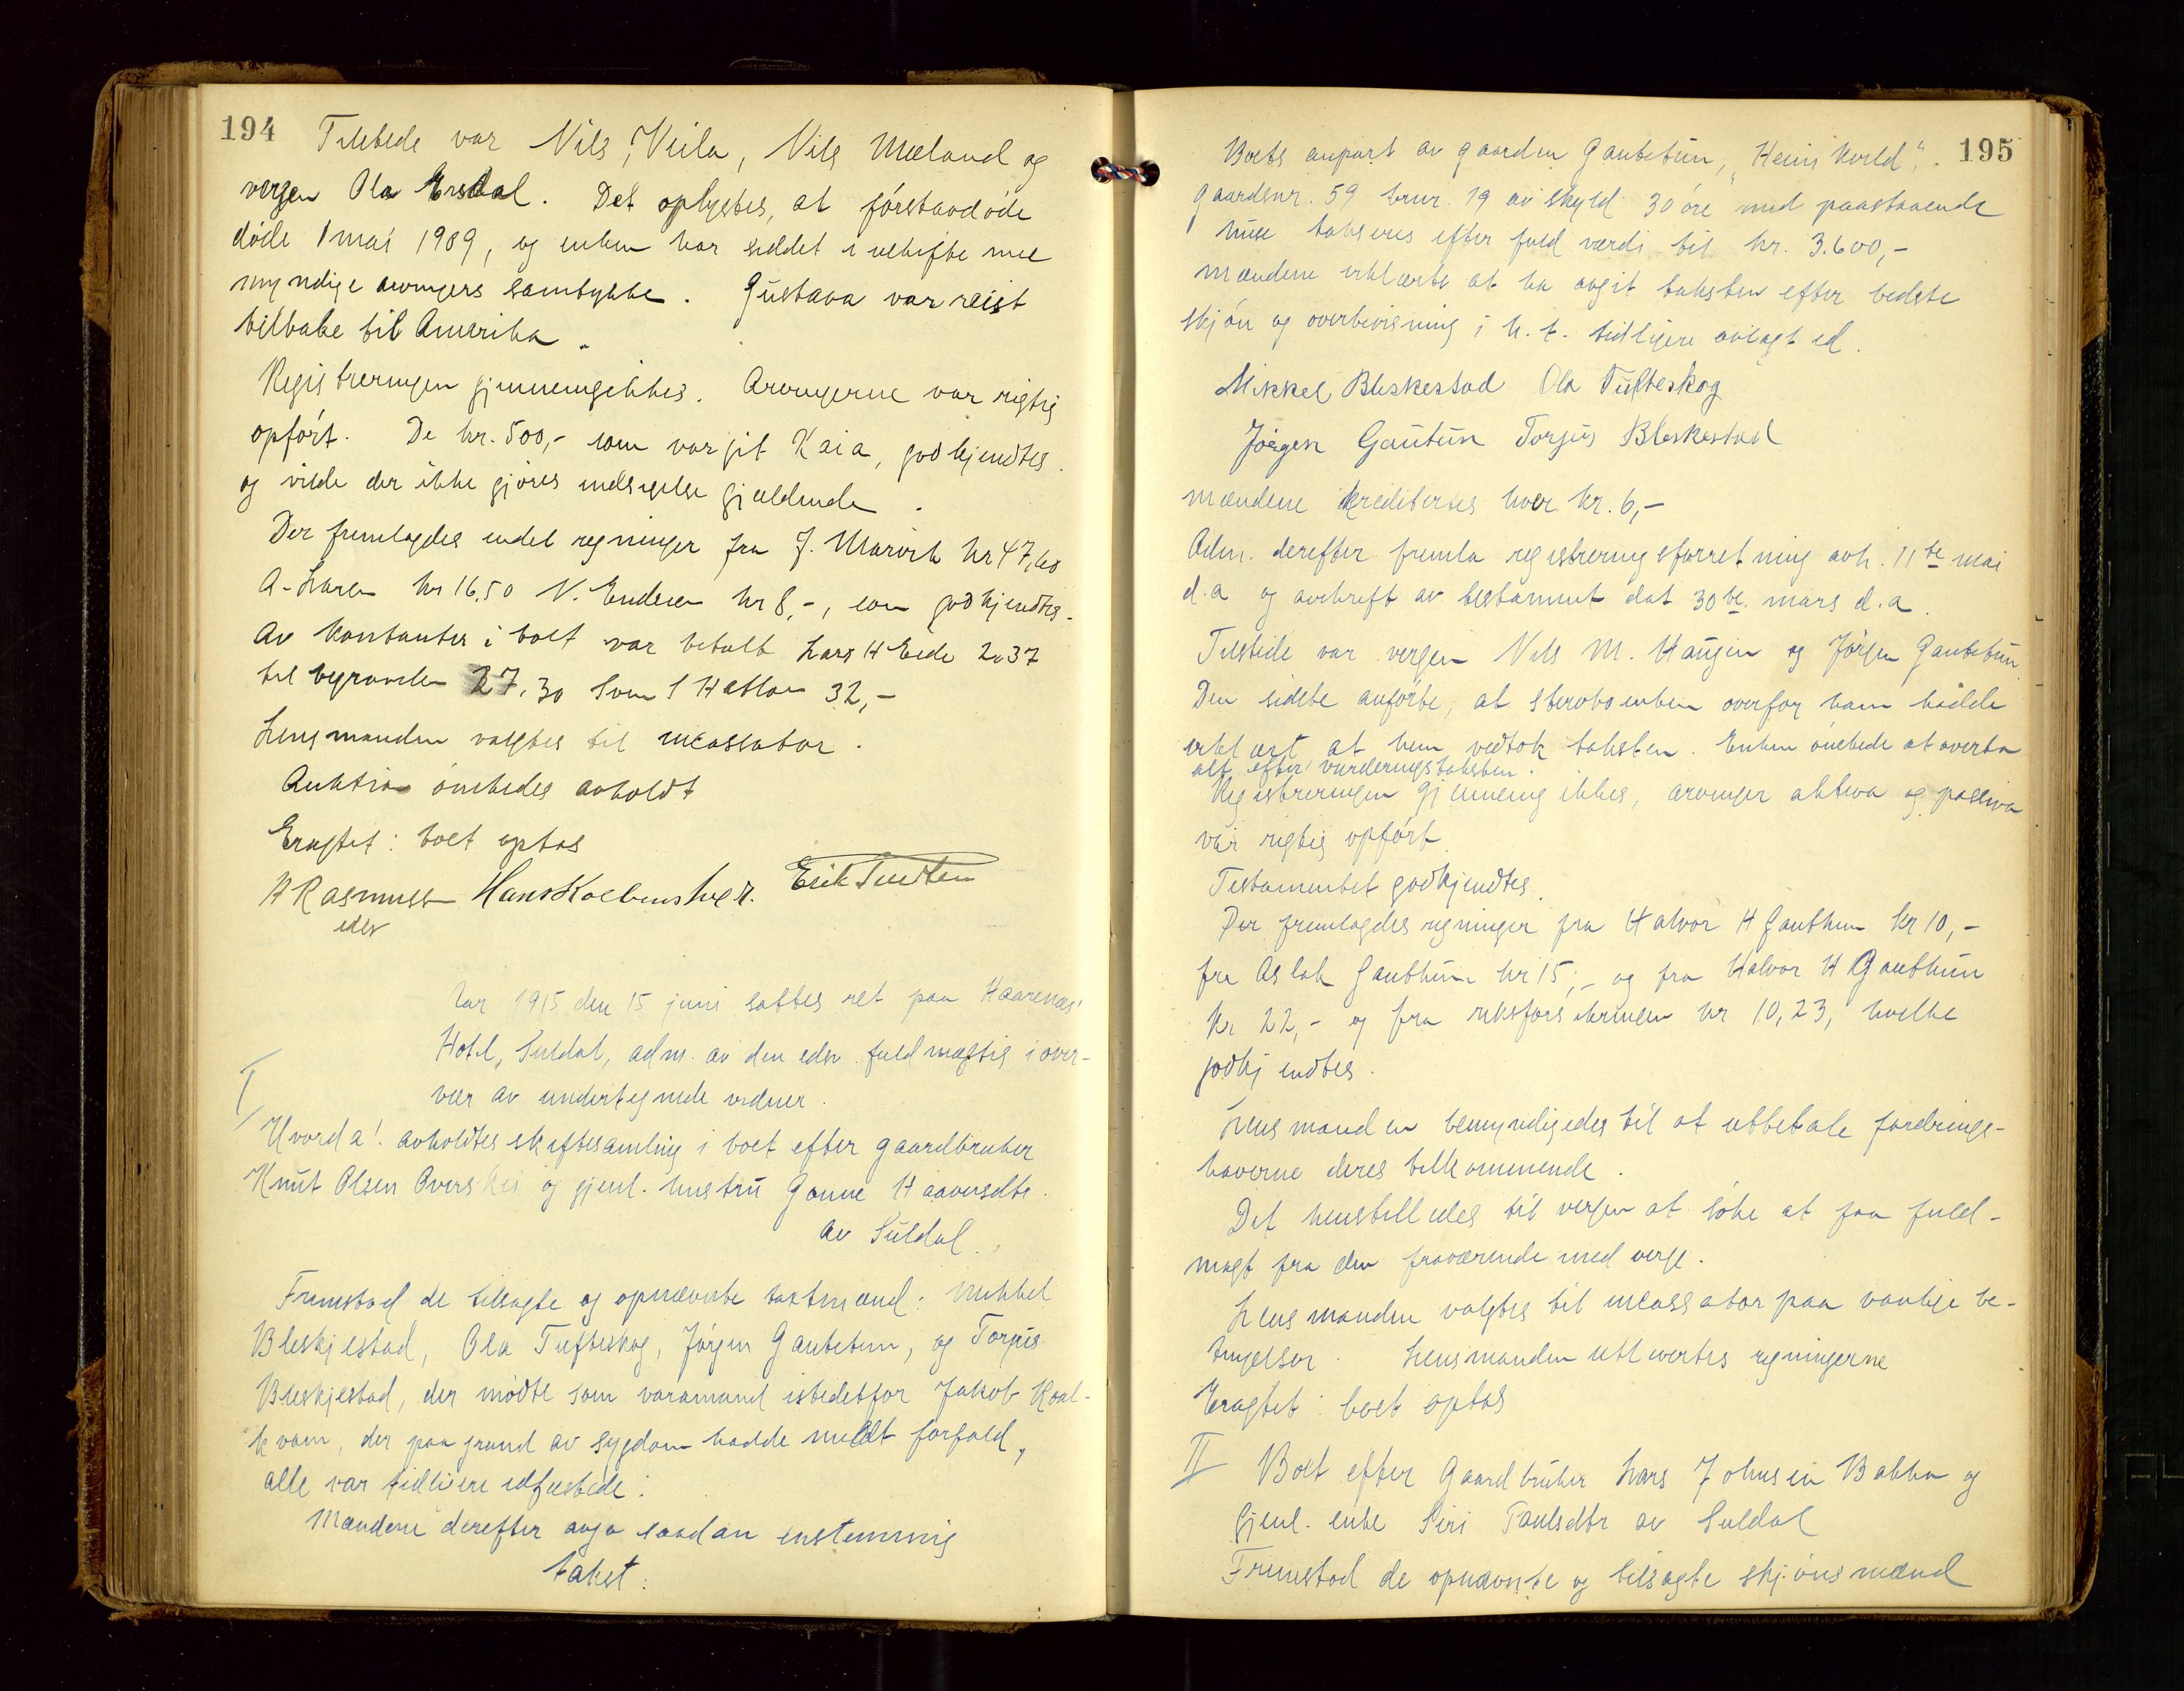 194
Tilstede var Nils Veila, Nils Mæland og
vergen Ola Ersdal. Det oplystes, at förstavdöde
döde 1 mai 1909, og enken har siddet i uskifte med
myndige arvingers samtykke. Gustava var reist
tilbake til Amerika.
Registreringen gjennemgikkes. Arvingerne var rigtig
opfört. De kr. 500,- som var git Kaia, godkjendtes
og vilde der ikke gjöres indsigelse gjældende.
Der fremlagdes endel regninger fra J. Marvik kr 47,60
A. Larsen kr 16,50 N. Endresen kr 8,-, som godkjendtes.
Av kontanter i boet var betalt Lars H Eide 2,37
til begravelse 27,30 Sven S Hatløe 32,-
Lensmanden valgtes til incassator.
Auktion önskedes avholdt
Eragtet: boet optas
H Rasmussen Hans Kolbenstvedt. Erik Tveten
edsv
Aar 1915 den 15 juni sattes ret paa Haarenæs'
Hotel, Suldal, adm. av den edsv. fuldmægtig i over-
vær av undertegnede vidner.
I
Hvorda! avholdtes skiftesamling i boet efter gaardbruker
Knut Olsen Overskei og gjenl. hustru Gonne Haaversdtr.
av Suldal.
Fremstod de tilsagte og opnævnte takstmænd: Mikkel
Bleskjestad, Ola Tufteskog, Jörgen Gautetun, og Torjus
Bleskjestad, der mödte som varamand istedetfor Jakob Kool-
kvam, der paa grund av sygdom hadde meldt forfald,
alle var tidligere edfæstede.
Mændene derefter avga saadan enstemmig
takst:
195
Boets anpart av gaarden Gautetun, "Heim kveld",
gaardsnr. 59 brnr. 19 av skyld 30 öre med paastaaende
huse takseres efter fuld værdi til kr. 3.600,-
Mændene erklærte at ha avgit taksten efter bedste
skjön og overbevisning i h. t. tidligere avlagt ed.
Mikkel Bleskestad Ola Tufteskog
Jörgen Gautun Torjus Bleskestad
Mændene krediteres hver kr. 6,-
Adm. derefter fremla registreringsforretning avh. 11te mai
d.a og avskrift av testament dat 30te mars d.a.
Tilstede var vergen Nils M. Haugen og Jörgen Gautetun
Den sidste anförte, at sterboenken overfor ham hadde
erklært at hun vedtok taksten. Enken önskede at overta
alt efter vurderingstaksten.
Registreringen gjennemgikkes, arvinger aktiva og passiva
var rigtig opfört.
Testamentet godkjendtes.
Der fremlagdes regninger fra Halvor H Gauthun kr 10,-
fra Aslak Gauthun kr 15,- og fra Halvor H Gauthun
kr 22,- og fra riksforsikringen kr 10,23, hvilke
godkjendtes.
Lensmanden bemyndigedes til at utbetale fordrings-
haverne deres tilkommende.
Det henstilledes til vergen at söke at faa fuld-
magt fra den fraværende med verge.
Lensmanden valgtes til incassator paa vanlige be-
tingelser. Lensmanden utleveres regningerne
Eragtet: boet optas
II Boet efter gaardbruker Lars Johnsen Bakka og
gjenl. enke Siri Paulsdtr av Suldal
Fremstod de opnævnte og tilsagte skjönsmænd